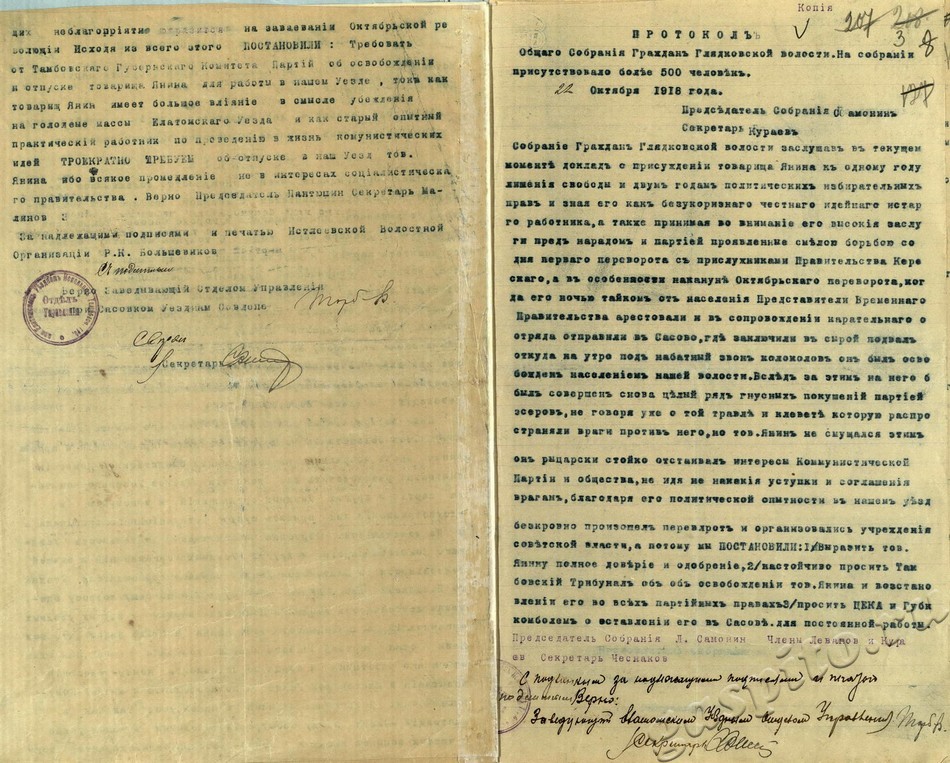 щих неблагоприятие на завоевании Октябрьской ре
волюции Исходя из всего этого ПОСТАНОВИЛИ: Требовать
от Тамбовского Губернского Комитета Партий об освобождении
и отпуске товарища Янина для работы в нашем Уезде, тока как
товарищ Янин имеет большое влiянiе в смысле убеждения
на голодные массы Елатомского Уезда и как старый опытный
практический работник по проведению в жизнь комунистических
идей ТРОЕКРАТНО ТРЕБУЕМ об отпуске в наш Уезд тов.
Янина ибо всякое промедление не в интересах соцiалистическа
го правительства. Верно Председатель Пантюшин Секретарь Ма-
линов 3
За надлежащими подписями и печатью Истлеевской Волостной
Организации Р.К. Большевиков
С подлинным
Верно Заведывающий Отделом Управления
Сасовском Уездном
Отделъ Управленiя
Верно
Секретарь
Копiя
207 208
3 8
ПРОТОКОЛЪ
Общаго Собранiя Граждан Глядковской волости.На собранiи
присутствовало болѣе 500 человѣкъ.
22 Октября 1918 года.
Предсѣдатель Собранiя Самонинъ
Секретарь Кураевъ
Собранiе Граждан Глядковской волости заслушав въ текущем
моментѣ доклад о присужденiи товарища Янина къ одному году
лишенiя свободы и двумъ годамъ политическихъ избирательныхъ
правъ и зная его какъ безукоризнаго честнаго идейнаго истар
го работника,а также принимая во вниманiе его высокiя заслу
ги предъ народамъ и партiей проявленные смѣлою борьбою со
дня перваго переворота съ прислужниками Правительства Кере
скаго,а въ особенности наканунѣ Октябрьскаго переворота,ког
да его ночью тайком отъ населенiя Представители Временнаго
Правительства арестовали и въ сопровожденiи карательнаго о
отряда отправили въ Сасово,гдѣ заключили въ сырой подвалъ
откуда на утро подъ набатный звон колоколовъ онъ былъ осво
божденъ населенiемъ нашей волости.Вслѣдъ за этимъ на него б
былъ совершен снова цѣлый рядъ гнусныхъ покушенiй партiей
эсеровъ,не говоря уже о той травлѣ и клеветѣ которую распро
страняли враги противъ него,но тов.Янинъ не смущался этимъ
онъ рыцарски стойко отстаивалъ интересы Коммунистической
Партiи и общества,не идя не накакiя уступки и соглашенiя
врагамъ,благодаря его политической опытности въ нашемъ уѣзд
безкровно произошелъ переворотъ и организовались учрежденiя
совѣтской власти,а потому мы ПОСТАНОВИЛИ:1/Выразить тов.
Янину полное довѣрiе и одобренiе,2/настойчиво просить Там
бовскiй Трибуналъ объ об освобожденiи тов.Янина и возстано
вленiи его во всѣхъ партiйныхъ правахъ3/просить ЦЕКА и Губк
комболем о оставленiи его въ Сасовѣ.для постоянной работы.
Председатель Собранiя Л. Самонин Члены Леванов и Кура
ев Секретарь Чеснаков
С подлинным за надлежащими подписями и печатью
Верно:
Заведующiй Елатомским Уездным Отделом Управления
Секретарь
gaspito.ru